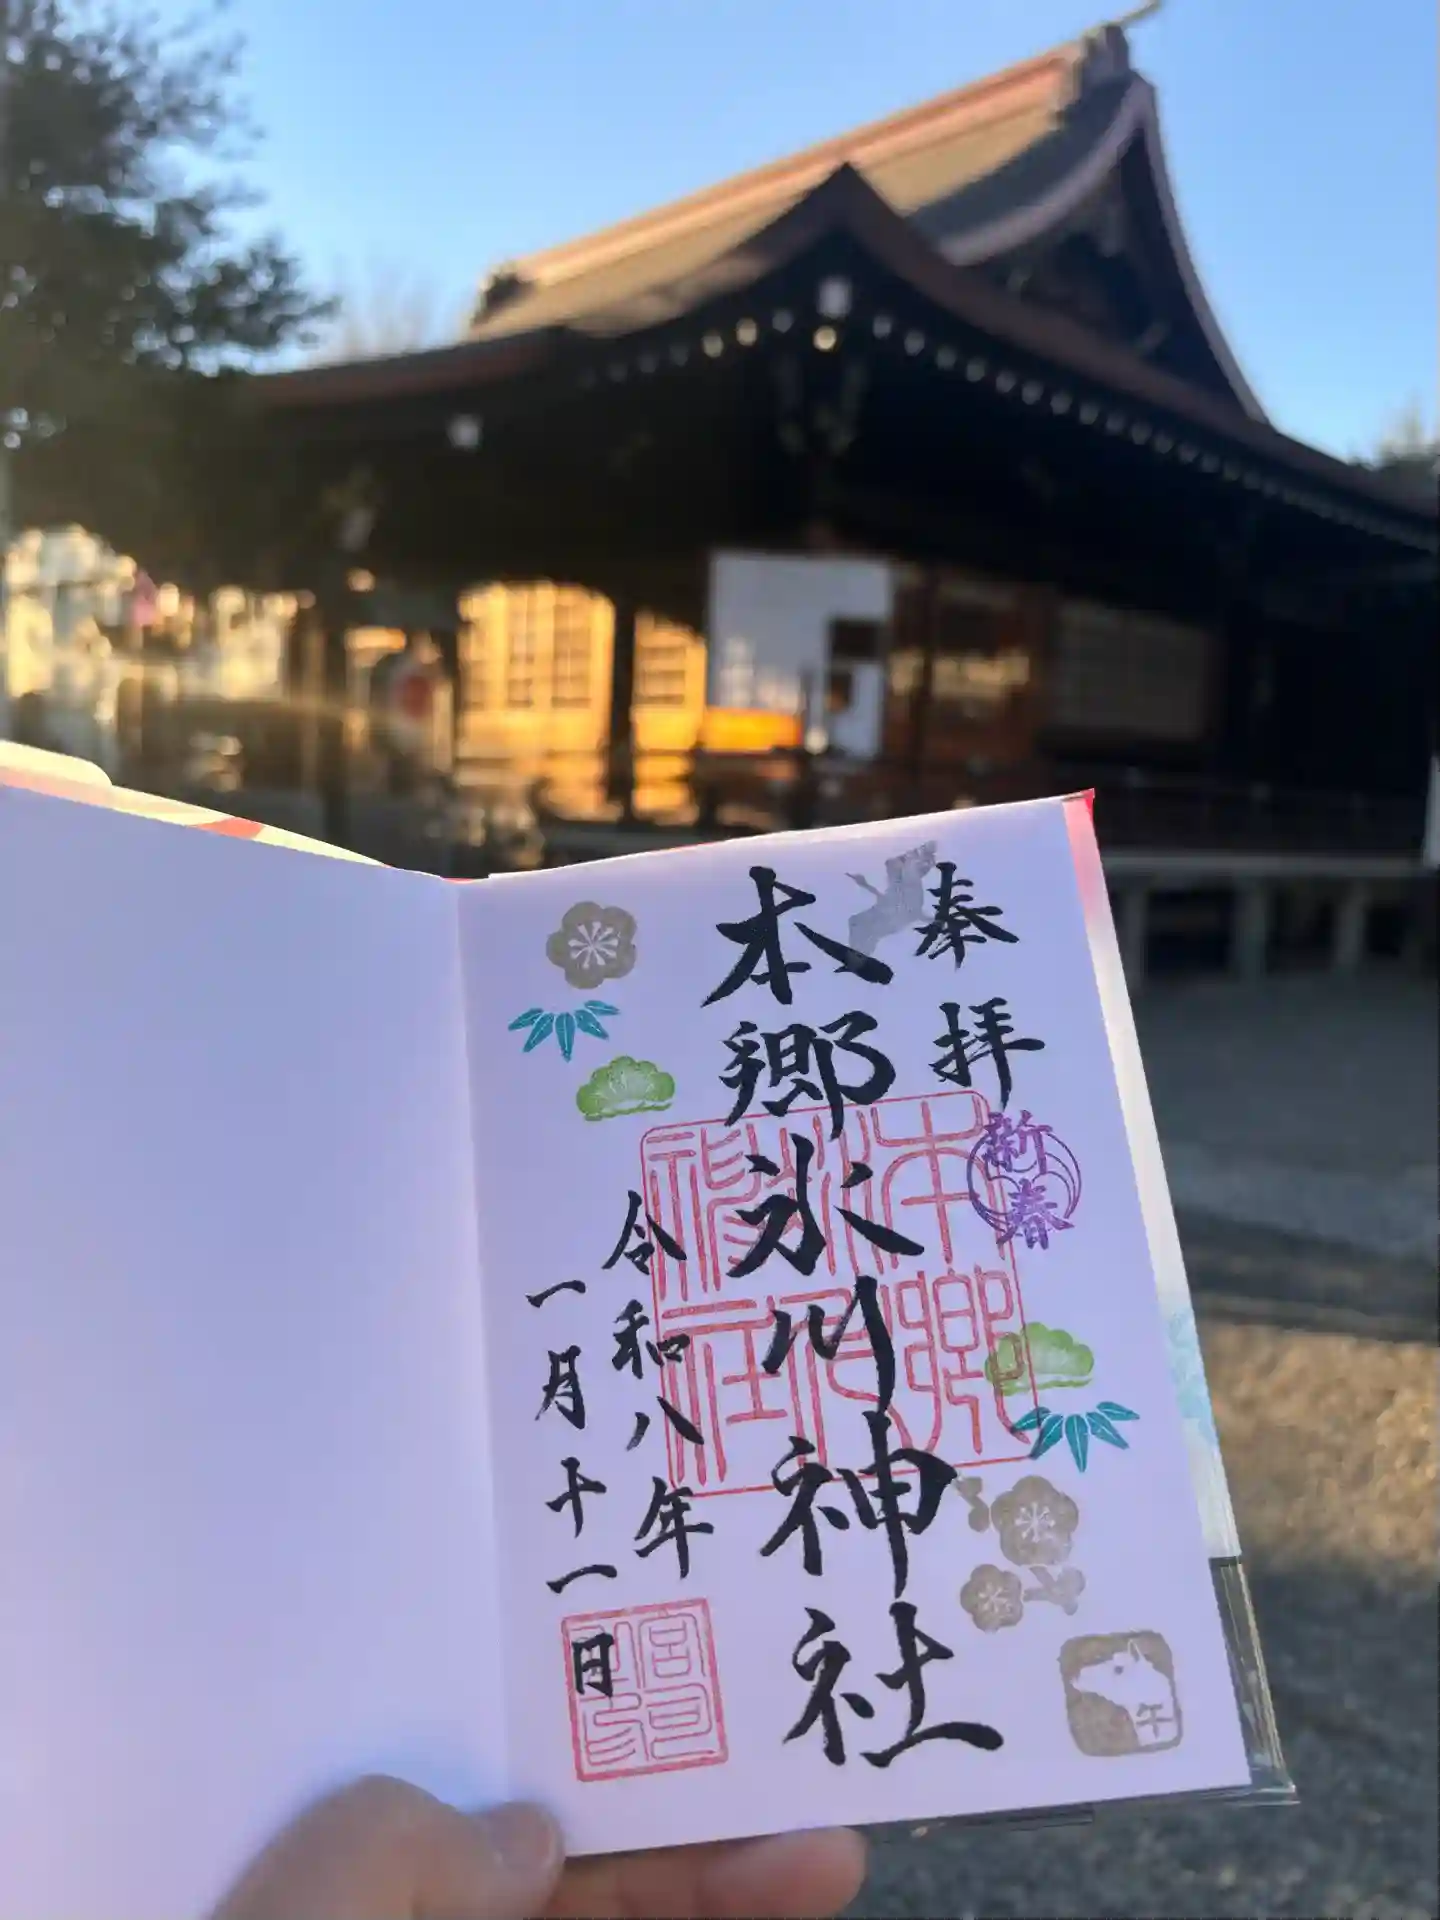 奉拝
新春
本郷氷川神社
令和八年
一月十一日
本郷氷川神社
午